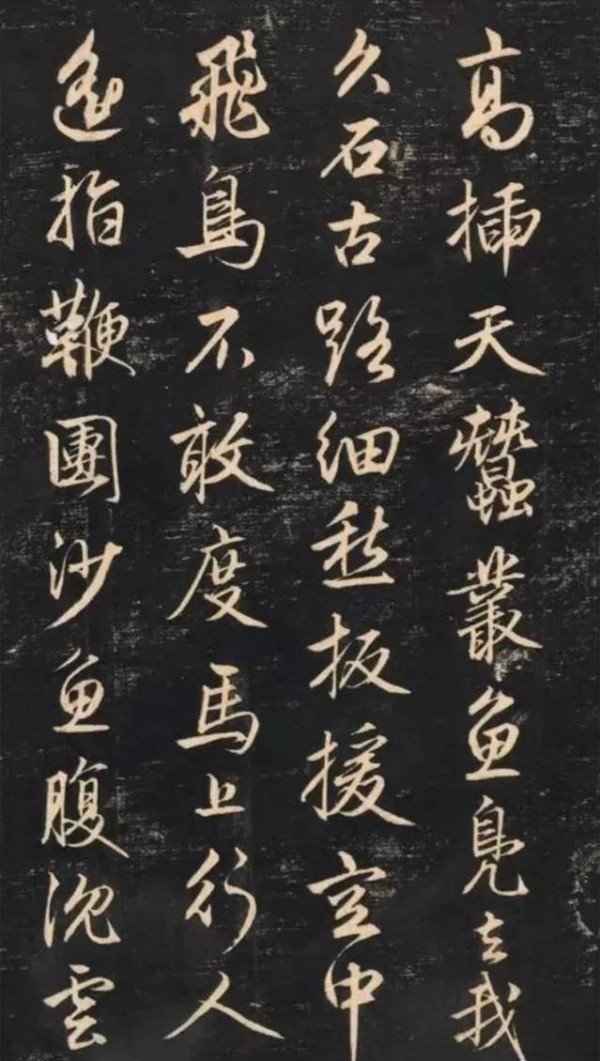 高插天蠶叢魚鳧去我
久石古路細愁扳援空中
飛鳥不敢度馬上行人
遥指鞭團沙魚腹沈雲